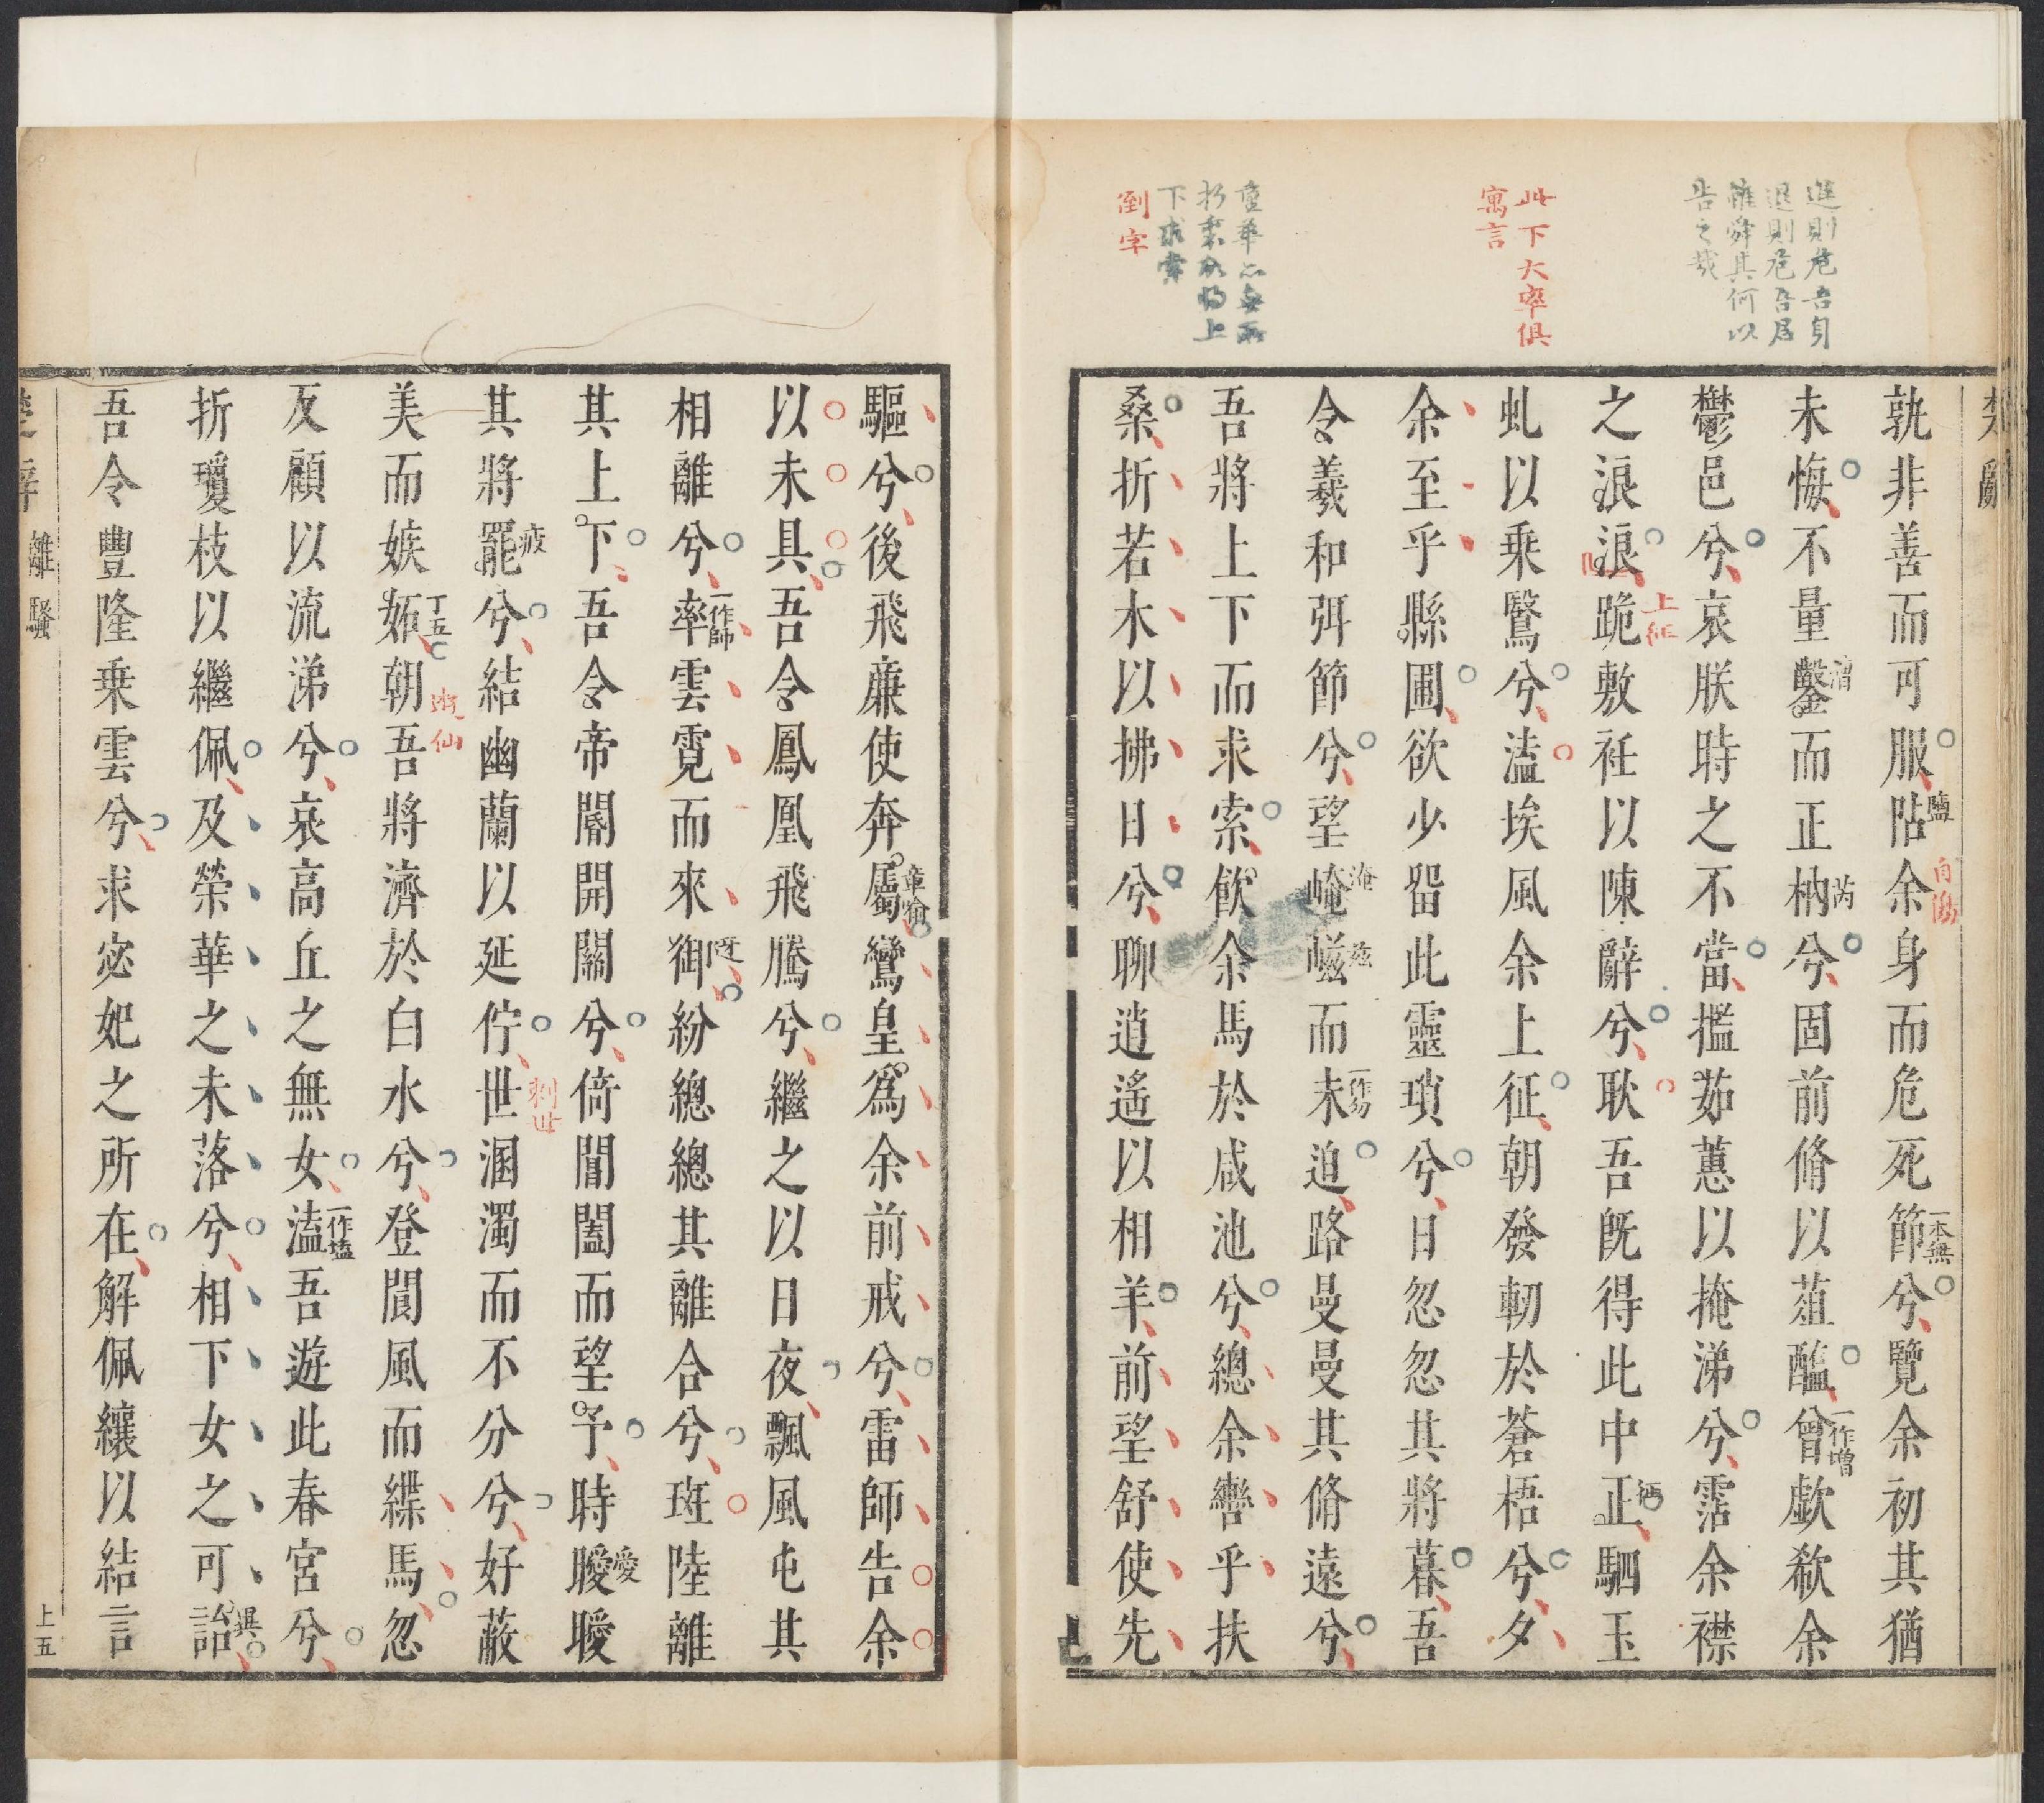 楚辭
進則危吾身
退則危吾君
雖舜其何以
告之哉
此下大率俱
寓言
重華亦無所
下求索
倒字
孰非善而可服阽余身而危死節兮覽余初其猶
鹽
一本無
未悔不量鑿而正枘兮固前脩以菹醢曾歔欷余
漕
芮
一作增
鬱邑兮哀朕時之不當擥茹蕙以掩涕兮霑余襟
之浪浪跪敷衽以陳辭兮耿吾旣得此中正駟玉
上征
虬以乘鷖兮溘埃風余上征朝發軔於蒼梧兮夕
余至乎縣圃欲少畱此靈瑣兮日忽忽其將暮吾
令羲和弭節兮望崦嵫而未迫路曼曼其脩遠兮
淹
茲
一作勿
吾將上下而求索飮余馬於咸池兮總余轡乎扶
桑折若木以拂日兮聊逍遙以相羊前望舒使先
驅兮後飛廉使奔屬鸞皇爲余前戒兮雷師告余
章喻
以未具吾令鳳凰飛騰兮繼之以日夜飄風屯其
相離兮率雲霓而來御紛總總其離合兮斑陸離
一作帥
迓
其上下吾令帝閽開關兮倚閶闔而望予時曖曖
愛
其將罷兮結幽蘭以延佇世溷濁而不分兮好蔽
疲
刺世
美而嫉妬朝吾將濟於白水兮登閬風而緤馬忽
丁五
遊仙
反顧以流涕兮哀高丘之無女溘吾遊此春宮兮
一作壒
折瓊枝以繼佩及榮華之未落兮相下女之可詒
異
吾令豐隆乘雲兮求宓妃之所在解佩纕以結言
楚辭
離騷
上五